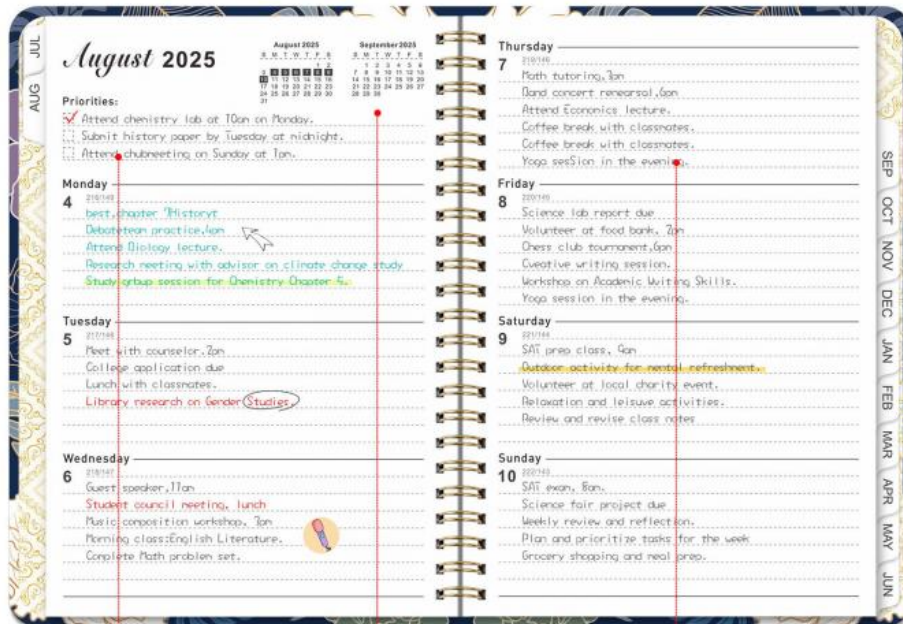 JUL
AUG
August 2025
August 2025
S M T W T F S
1 2
3 4 5 6 7 8 9
10 11 12 13 14 15 16
17 18 19 20 21 22 23
24 25 26 27 28 29 30
31
September 2025
S M T W T F S
1 2 3 4 5 6
7 8 9 10 11 12 13
14 15 16 17 18 19 20
21 22 23 24 25 26 27
28 29 30
Priorities:
Attend chemistry lab at 10am on Monday.
Submit history paper by Tuesday at midnight.
Attend chubneeting on Sunday at 1pm.
Monday
4
216/149
best,chapter 7Historyt
Debatetean practice,4pm
Attend Biology lecture.
Research neeting with advisor on climate change study
Study group session for Chemistry Chapter 5.
Tuesday
5
217/148
Meet with counselor,2pn
College application due
Lunch with classnates.
Library research on Gender Studies
Wednesday
6
218/147
Guest speaker,11an
Student council neeting, lunch
Music conposition workshop, 3pn
Morning class:English Literature.
Conplete Math problem set.
Thursday
7
219/146
Math tutoring,3pn
Band concert rehearsal,6pm
Attend Economics lecture.
Coffee break with classnates.
Coffee break with classnates.
Yoga sesSion in the evening.
Friday
8
220/145
Science lab report due
Volunteer at food bank, 2pn
Chess club tournanent,6pn
Cveative writing session.
Workshop on Academic Wviting Skills.
Yoga session in the evening.
Saturday
9
221/144
SAT prep class, 9an
Outdoor activity for nental refreshnent.
Volunteer at local charity event.
Relaxation and leisuve activities.
Review and revise class notes
Sunday
10
222/143
SAT exan, 8an.
Science fair project due
Weekly review and reflection.
Plan and prioritize tasks for the week
Grocery shopping and neal prep.
SEP
OCT
NOV
DEC
JAN
FEB
MAR
APR
MAY
JUN